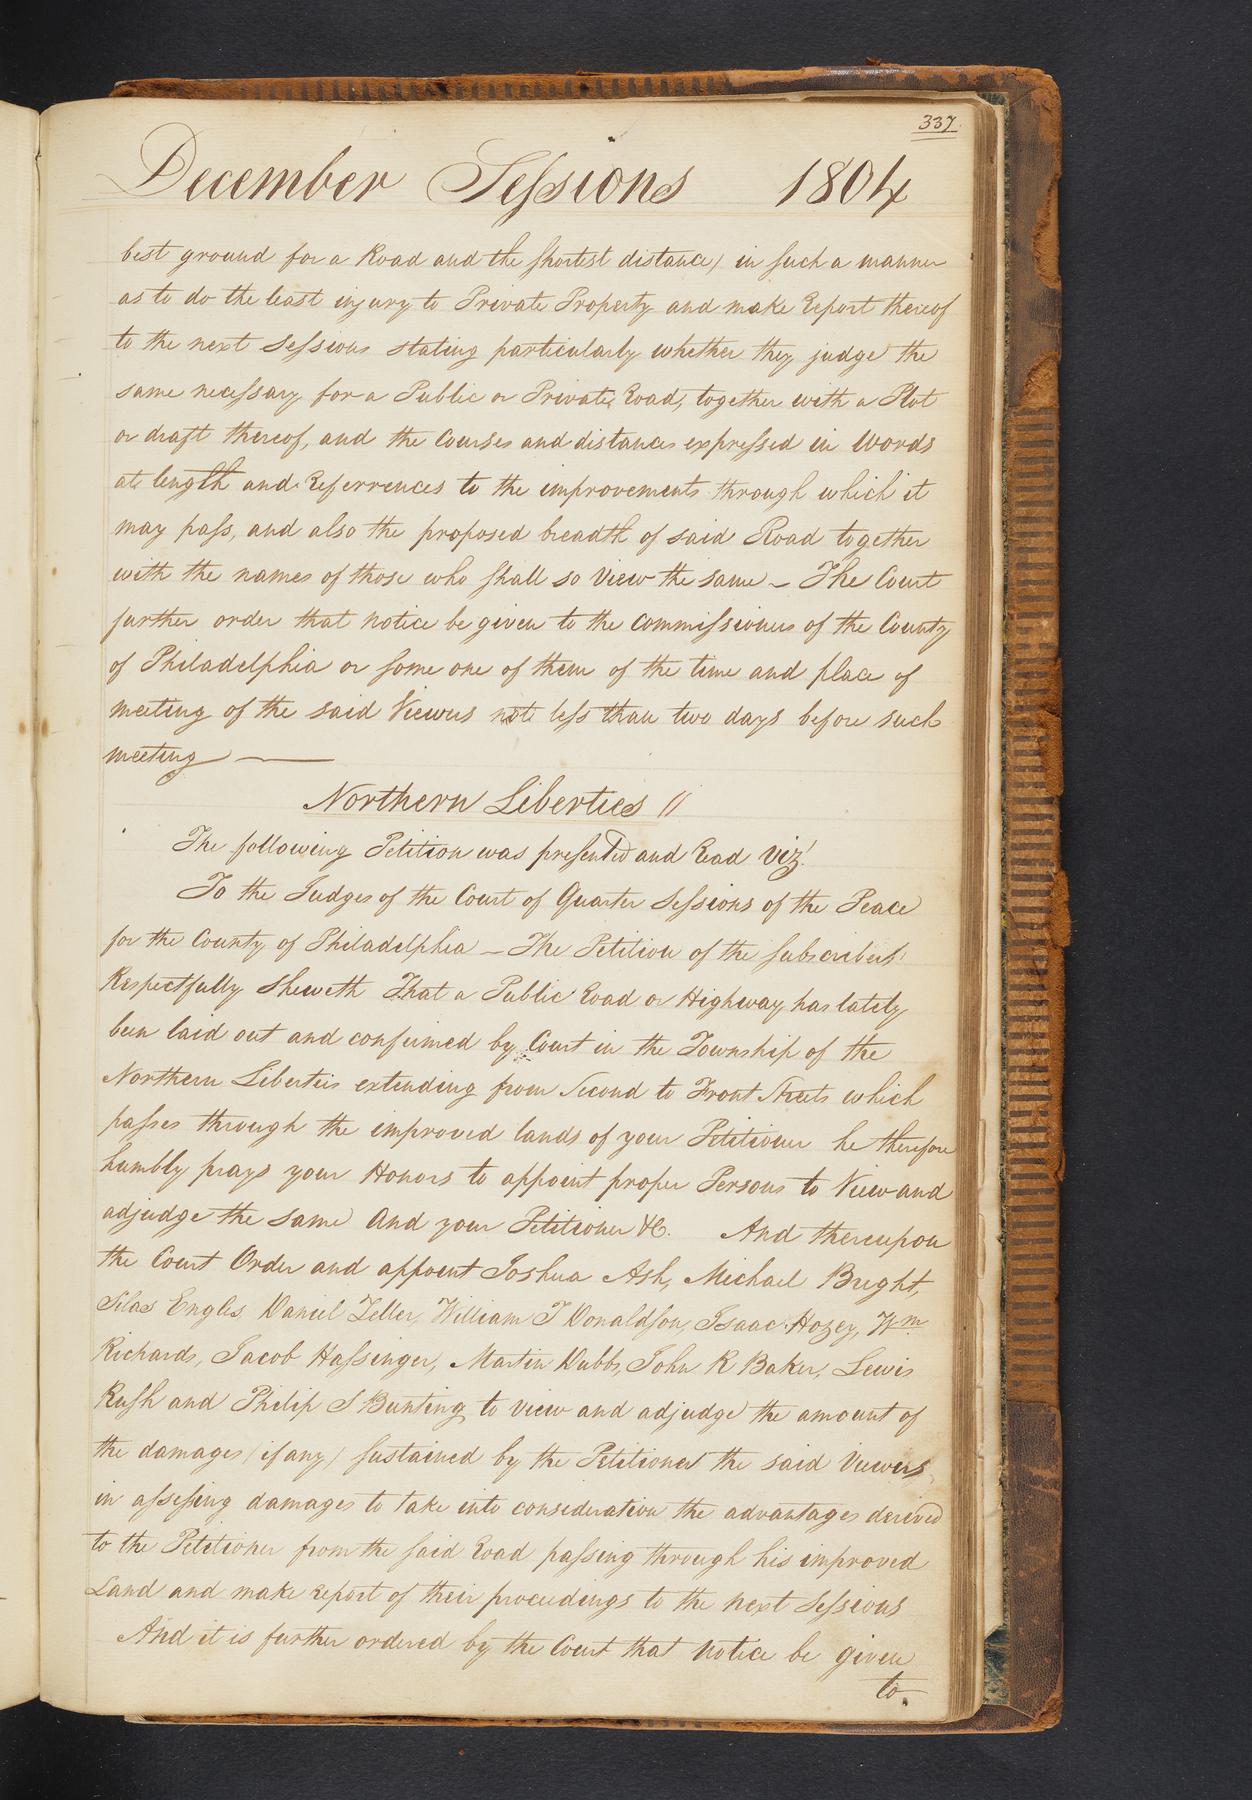 337
December Sessions 1804
best ground for a Road and the shortest distance) in such a manner
as to do the least injury to Private Property and make Report thereof
to the next Sessions stating particularly whether they judge the
same necessary for a Public or Private Road, together with a Plot
or draft thereof, and the Courses and distances expressed in Words
at length and Referrences to the improvements through which it
may pass, and also the proposed breadth of said Road together
with the names of those who shall so View the same – The Court
further order that notice be given to the Commissioners of the County
of Philadelphia or some one of them of the time and place of
meeting of the said Viewers not less than two days before such
meeting ———
Northern Liberties //
The following Petition was presented and Read Viz.
To the Judges of the Court of Quarter Sessions of the Peace
for the County of Philadelphia – The Petition of the subscribers
Respectfully Sheweth That a Public Road or Highway has lately
been laid out and confirmed by Court in the Township of the
Northern Liberties extending from Second to Front Streets which
passes through the improved lands of your Petitioner he therefore
humbly prays your Honors to appoint proper Persons to View and
adjudge the same And your Petitioner &c. And thereupon
the Court Order and appoint Joshua Ash, Michael Bright,
Silas Engles, Daniel Zeller, William T Donaldson, Isaac Hozey, Wm
Richards, Jacob Hassinger, Martin Dubbs, John R Baker, Lewis
Rush and Philip S Bunting to view and adjudge the amount of
the damages (if any) sustained by the Petitioner the said Viewers
in assessing damages to take into consideration the advantages derived
to the Petitioner from the said Road passing through his improved
Land and make report of their proceedings to the next Sessions
And it is further ordered by the Court that notice be given
to